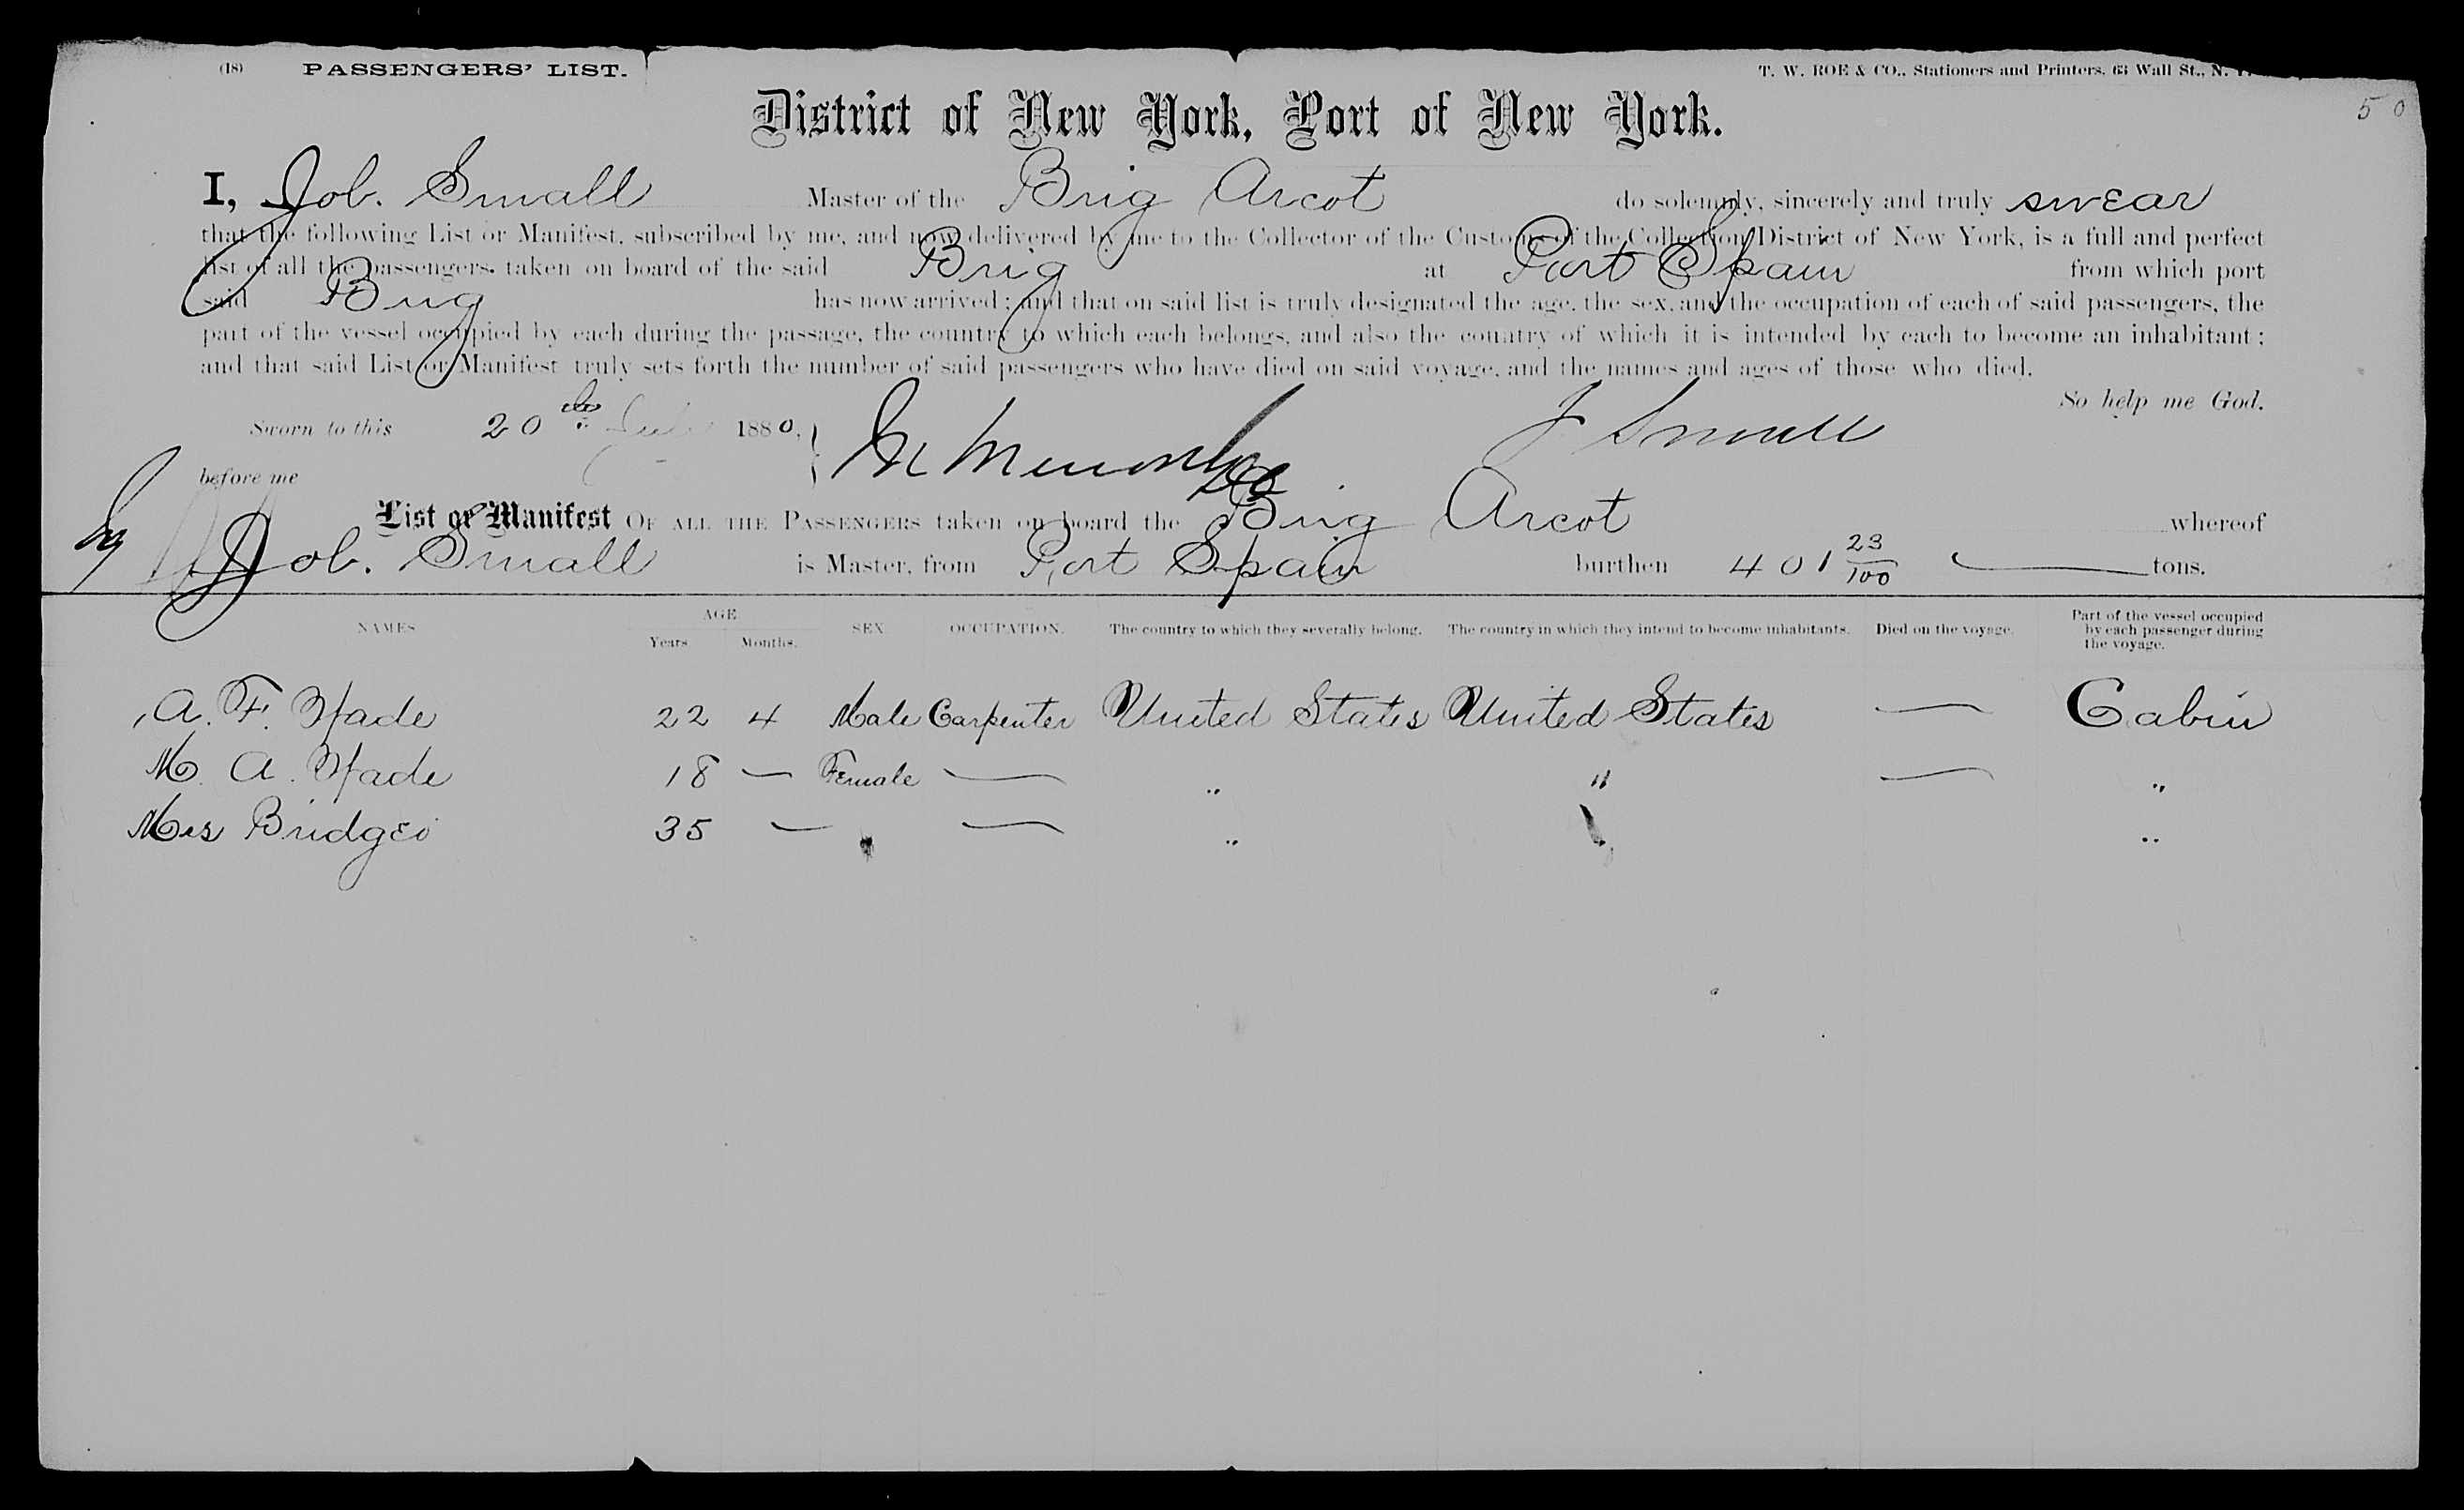 (18) PASSENGERS' LIST. T. W. ROE & CO., Stationers and Printers, 63 Wall St., N. Y.
50
District of New York, Port of New York.
I, Job. Small Master of the Brig Arcot do solemnly, sincerely and truly swear
that the following List or Manifest, subscribed by me, and now delivered by me to the Collector of the Customs of the Collection District of New York, is a full and perfect
list of all the passengers taken on board of the said Brig at Port Spain from which port
said Brig has now arrived; and that on said list is truly designated the age, the sex, and the occupation of each of said passengers, the
part of the vessel occupied by each during the passage, the country to which each belongs, and also the country of which it is intended by each to become an inhabitant;
and that said List or Manifest truly sets forth the number of said passengers who have died on said voyage, and the names and ages of those who died.
So help me God.
Sworn to this 20th 1880, J Small
before me
List or Manifest OF ALL THE PASSENGERS taken on board the Brig Arcot whereof
Job. Small is Master, from Port Spain burthen 401 23/100 tons.
NAMES AGE Years Months. SEX OCCUPATION. The country to which they severally belong. The country in which they intend to become inhabitants. Died on the voyage. Part of the vessel occupied by each passenger during the voyage.
A. F. 22 4 Male Carpenter United States United States — Cabin
M. A. 18 — Female — " " — "
Mrs Bridges 35 — " — " " "